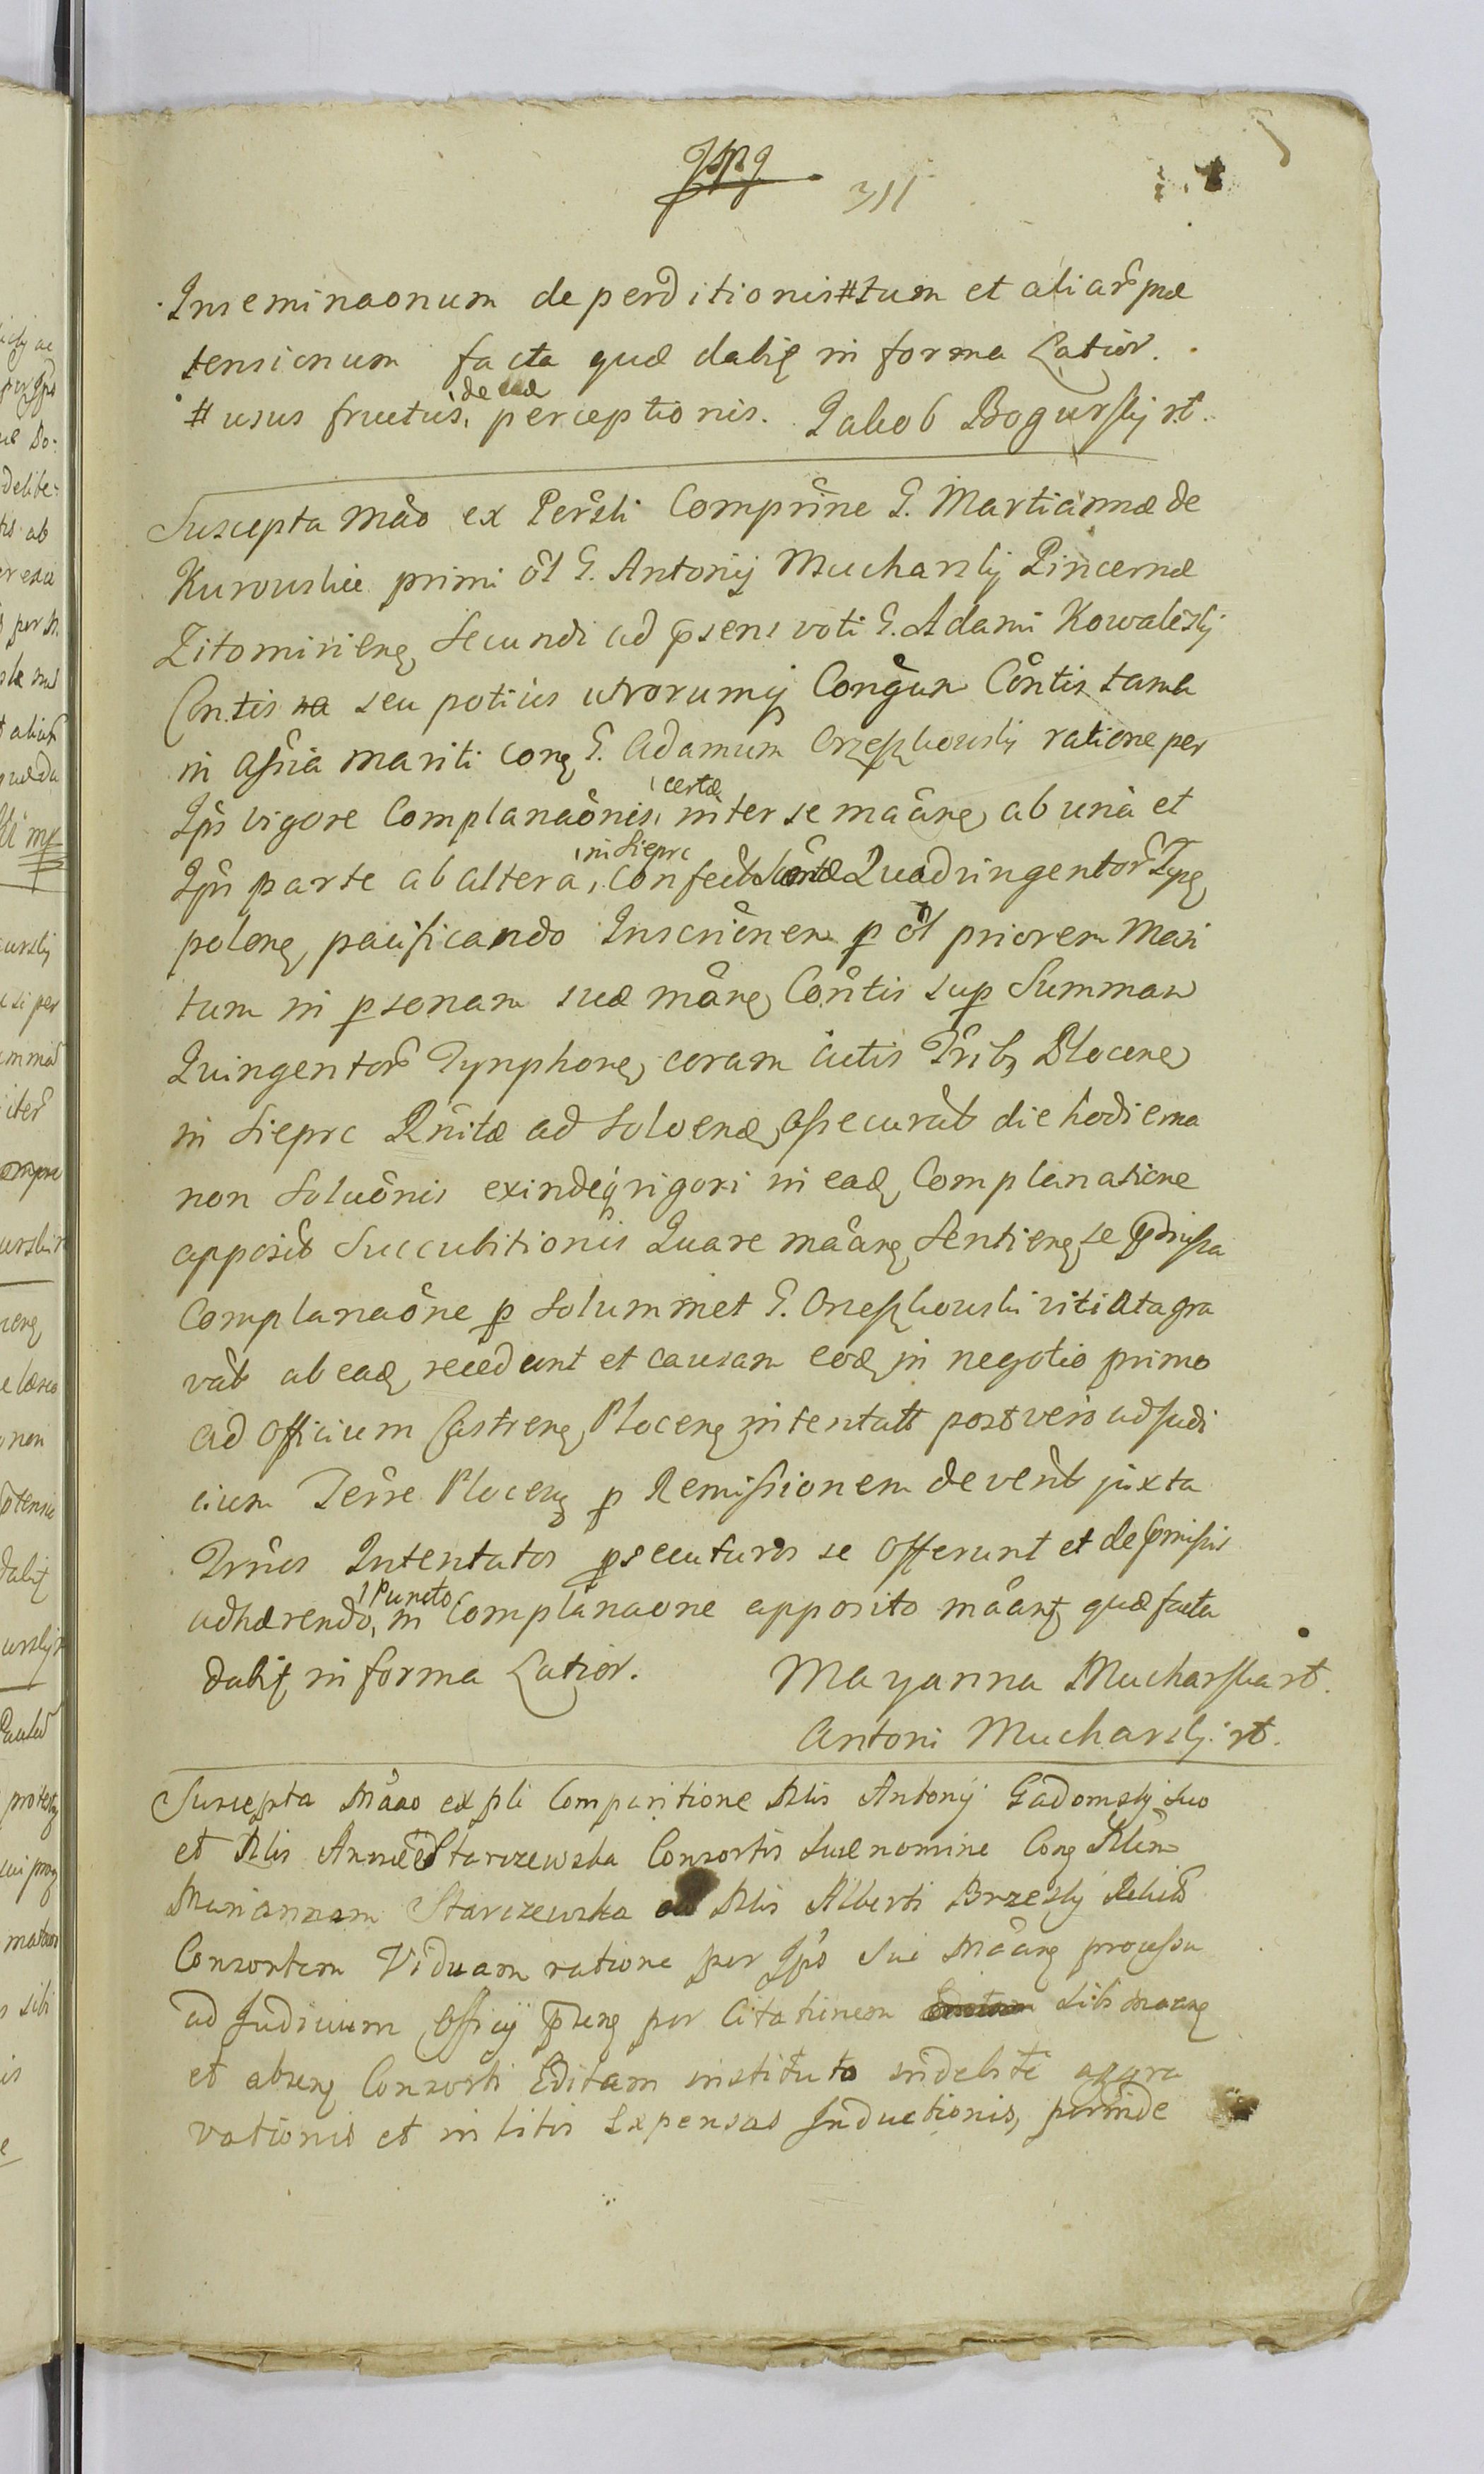 311
Inseminaonum deperditionis # tum et aliar præ
tensionum facta quæ dabit in forma Latior.
# usus fructus, de eadem perceptionis. Jakob Bogurskj rt.
Suscepta mão ex Persli Comprine G. Martiannæ de
Kurowskie primi ol G. Antonij Mucharskj Pincernæ
Zitomiriens Secundi ad psens voti G. Adami Kowalewskj
Contis seu potius utrorumq Congum Contis tama
in assia mariti cong G. Adamum Orzeszkowskj ratione per
Ipm vigore Complanaonis, certæ inter se maâns ab unâ et
Ipm parte ab altera, in Sieprc confect Quadringentor Tyn
polon pacificando Inscrionem p ol priorem Mari
tum in psonam suæ mâns Contis sup Summam
Quingentor Tynphons coram actis Trib Plocens
in Sieprc Rnitæ ad Solvend assecurat die hodierna
non Soluonis exindeq rigori in ead Complanatione
apposit Succubitionis Quare maâns Sentiens se pmissa
Complanaône p solummet G. Orzeszkowski vitiata gra
vat ab ead recedunt et causam eod in negotio primo
ad Officium Castrens Plocens intentatt post vero ad Judi
cium Terre Plocens p Remissionem devent juxta
Trnos Intentatos psecuturos se Offerunt et de pmissis
adhærendo, Puncto in Complanaone apposito maânt quæ facta
dabit in forma Latior. Mayanna Mucharska rt.
Antoni Mucharskj. rt.
Suscepta Mâao ex pli Comparitione Nlis Antonij Gadomskj suo
et Nlis Annæ Starczewska Consortis suæ nomine Cong Nlem
Mariannam Starczewska Nlis Alberti Brzeskj Relict
Consortem Viduam ratione per Ipm sui Mâans processu
ad Judicium Officij psens per Citationem sibi maang
et absens Consorti Editam instituto indebite aggra
vationis et in litis Expensas Inductionis, perinde